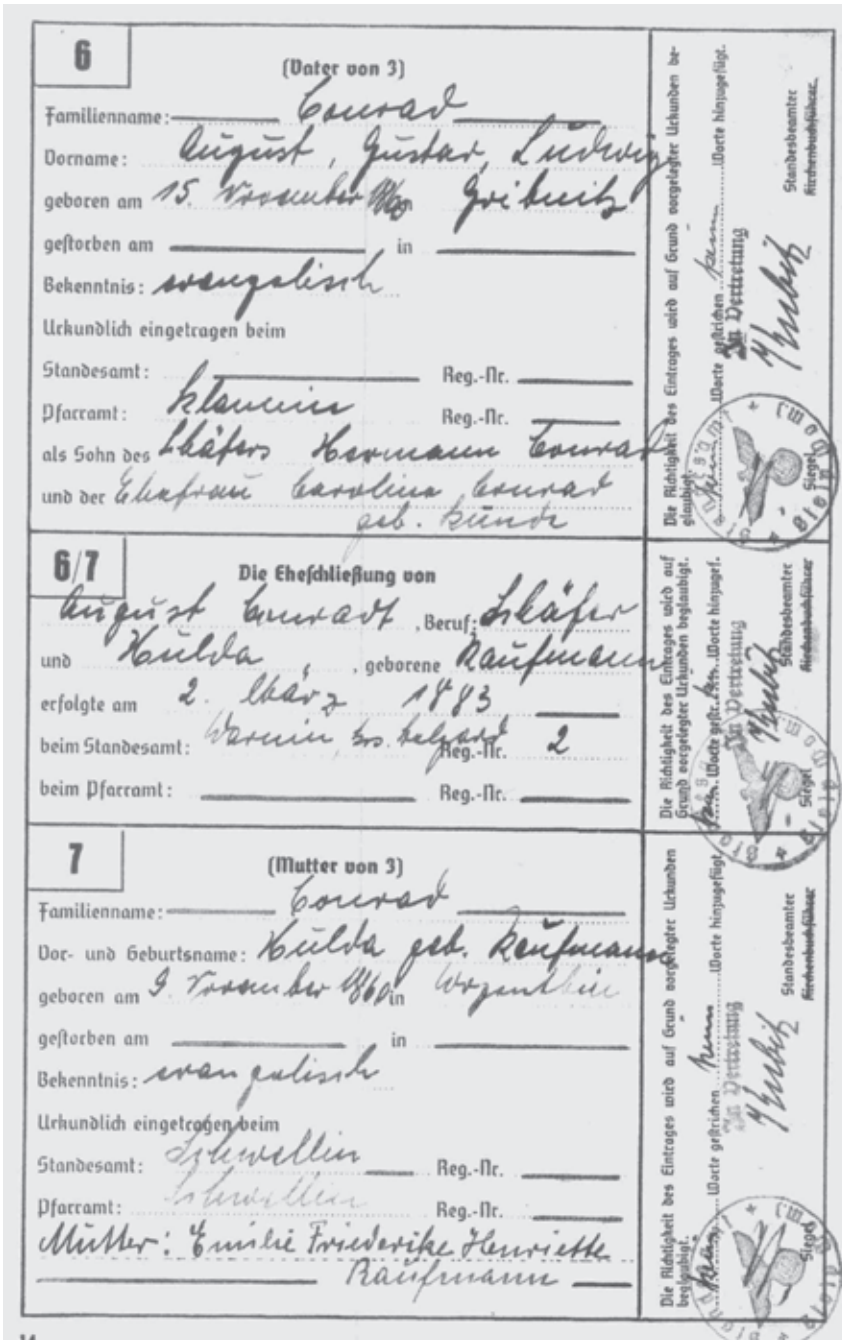 6
(Vater von 3)
Familienname: Conrad
Vorname: August, Gustav, Ludwig
geboren am 15. November 1860 in Gribnitz
gestorben am in
Bekenntnis: evangelisch
Urkundlich eingetragen beim
Standesamt: Reg.-Nr.
Pfarramt: Reg.-Nr.
als Sohn des Schäfers Hermann Conrad
und der Ehefrau Caroline Conrad
geb. Kunde
Die Richtigkeit des Eintrages wird auf Grund vorgelegter Urkunden be-
glaubigt. Worte gestrichen Worte hinzugefügt.
In Vertretung
Standesbeamter
Kirchenbuchführer
Siegel
6/7
Die Eheschließung von
August Conradt, Beruf: Schäfer
und Hulda, geborene Kaufmann
erfolgte am 2. März 1883
beim Standesamt: Warnin, Reg.-Nr. 2
beim Pfarramt: Reg.-Nr.
Die Richtigkeit des Eintrages wird auf
Grund vorgelegter Urkunden beglaubigt.
Worte gestr. Worte hinzugef.
In Vertretung
Standesbeamter
Kirchenbuchführer
Siegel
7
(Mutter von 3)
Familienname: Conrad
Vor- und Geburtsname: Hulda geb. Kaufmann
geboren am 9. November 1860 in
gestorben am in
Bekenntnis: evangelisch
Urkundlich eingetragen beim
Standesamt: Schwellin Reg.-Nr.
Pfarramt: Schwellin Reg.-Nr.
Mutter: Emilie Friederike Henriette
Kaufmann
Die Richtigkeit des Eintrages wird auf Grund vorgelegter Urkunden
beglaubigt. Worte gestrichen Worte hinzugefügt.
In Vertretung
Standesbeamter
Kirchenbuchführer
Siegel
14